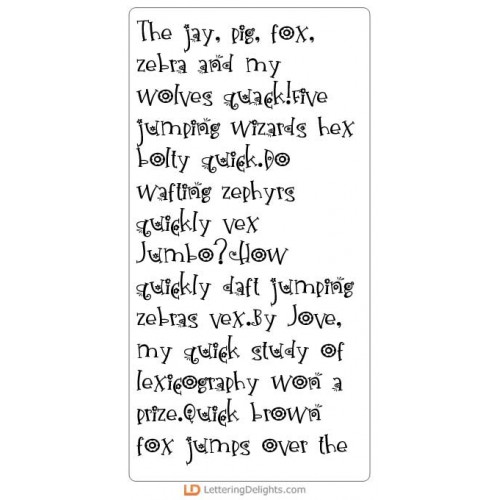 The jay, pig, fox,
zebra and my
wolves quack!Five
jumping wizards hex
bolty quick.Do
wafting zephyrs
quickly vex
Jumbo?How
quickly daft jumping
zebras vex.By Jove,
my quick study of
lexicography won a
prize.Quick brown
fox jumps over the
LD LetteringDelights.com